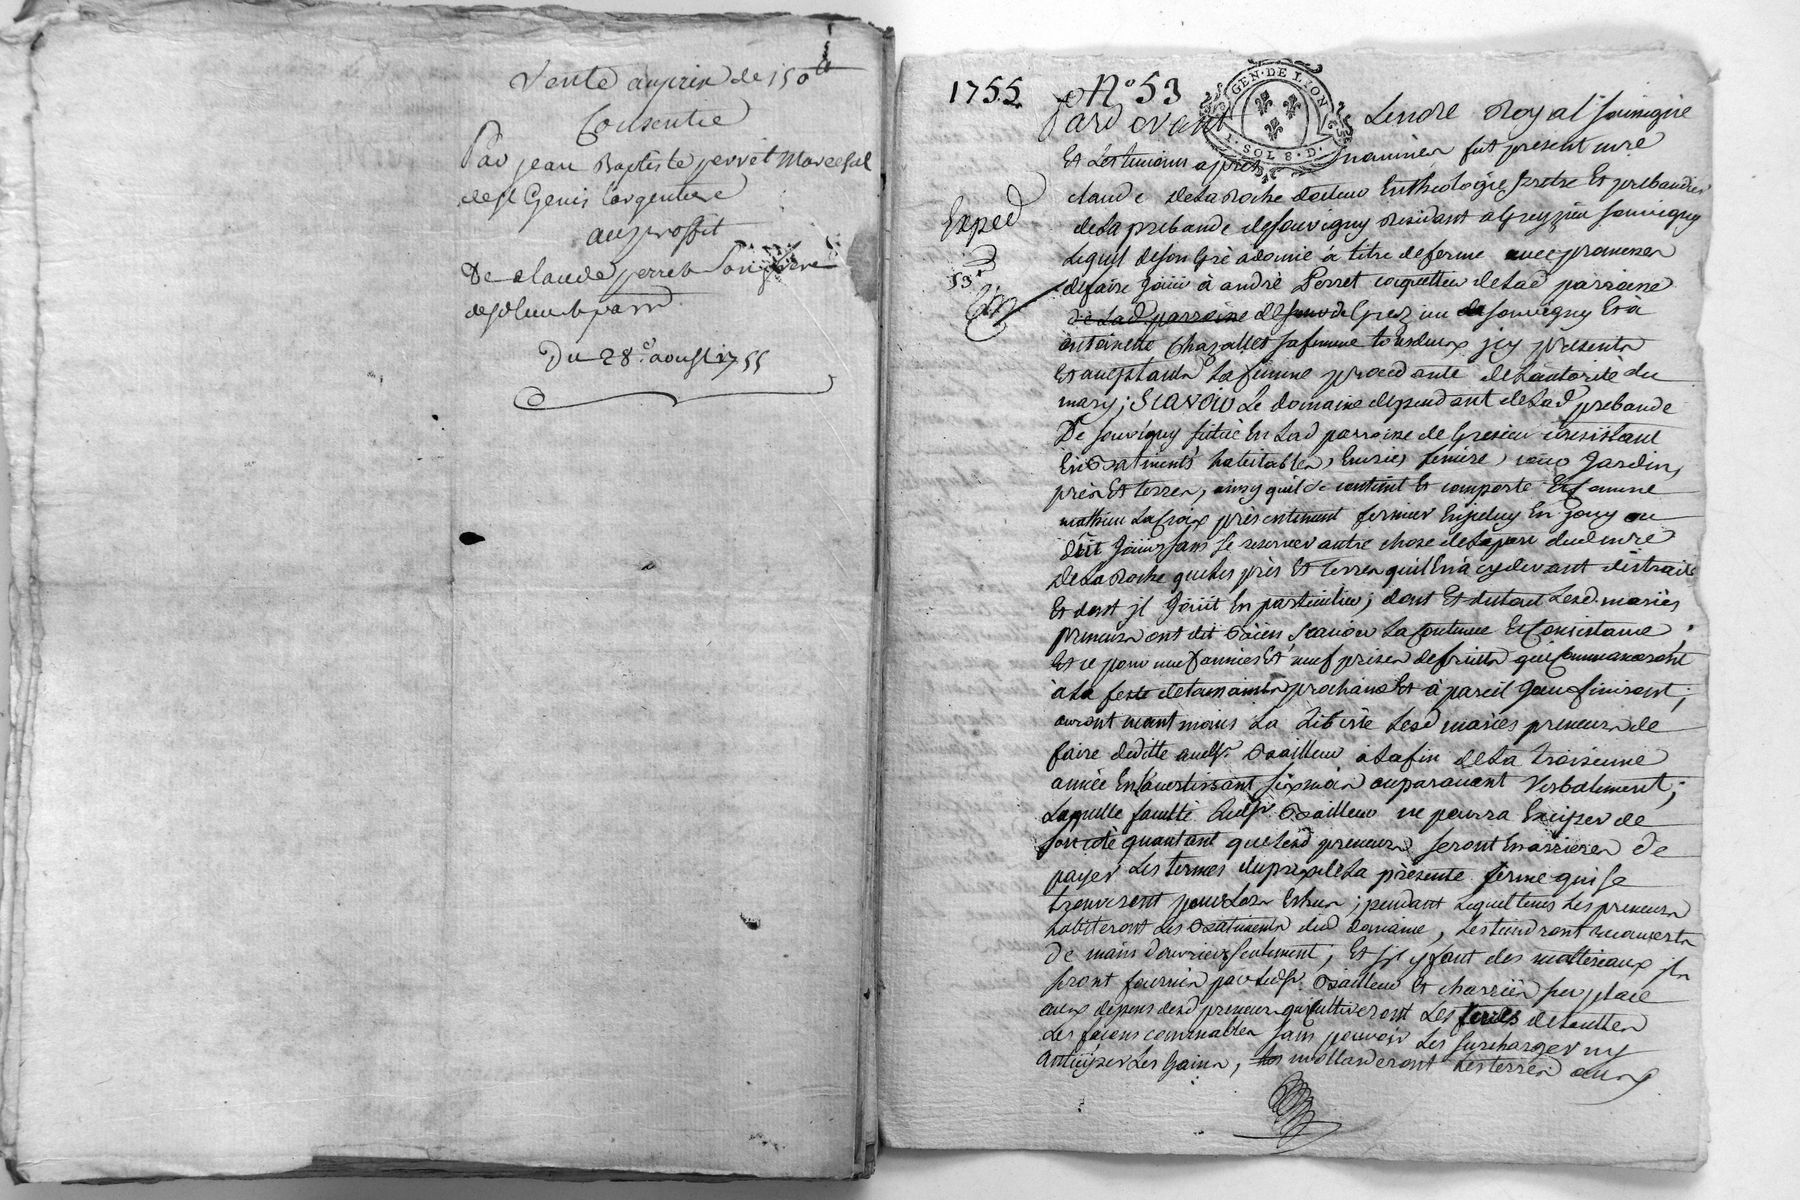 Vente au prix de 150 ll
Consentie
Par jean Baptiste perret Marechal
de st Genis l'argentiere
au proffit
De claude perret Son frere
de st
Du 28e aoust 1755
1755
No 53
GEN. DE LION
SOL 8. D.
Exped
53
Pardevant Lenore Royal soussigné
Et Les temoins apres nommés fut present mre
claude delaroche docteur En theologie, pretre Et prebandier
dela prebande de souvigny residant a Greyzieu souvigny
Lequel de son Gré a donné à titre de ferme avec promesse
de faire Jouir à andré Perret coquettier de lad parroisse
de Lad parroisse de Grez ieu souvigny Et à
antoinette Chazallet sa femme tous deux icy presents
Et acceptants La femme procedante de L'autorité du
mary; SCAVOIR Le domaine dependant de Lad prebande
De souvigny situé En Lad parroisse de Gresieu consistant
En Batiments habitables, Ecuries, feniere, cour Jardin,
prés Et terres, ainsy qu'il se contient Et comporte Et Comme
mathieu Lacroix présentement fermier En jouy ou
dût Jouir sans se reserver autre chose de La part dud mre
DeLaroche que Les prés Et terres qu'il En à cy devant distraits
Et dont il Jouit En particulier; dont Et du tout Lesd. mariés
preneurs ont dit Bien Scavoir La Contenue Et Consistance;
Et ce pour neuf années Et neuf prises de fruits qui Commanceront
à La feste de La prochaine Et à pareil Jour finiront;
auront neantmoins La Liberté Lesd mariés preneurs de
faire deditte aud sr Bailleur à La fin de La troisieme
année En L'avertissant six mois auparavant verbalement;
Laquelle faculté Led sr Bailleur ne pourra Exciper de
son côté quantant que Lesd preneurs seront En arrieres de
payer Les termes du prix de La présente ferme qui se
trouveront pour Lors Echus; pendant Lequel tems Les preneurs
habiteront Les Batiments dud domaine, Les tiendront recouverts
De mains d'ouvriers seulement, Et s'il y faut des matteriaux ils
seront fournis par Led sr Bailleur Et charriés sur place
aux depens desd preneurs qui Cultiveront Les fonds de touttes
Les façons convenables sans pouvoir Les surcharger ny
anticiper Les Gains, Les terres aux